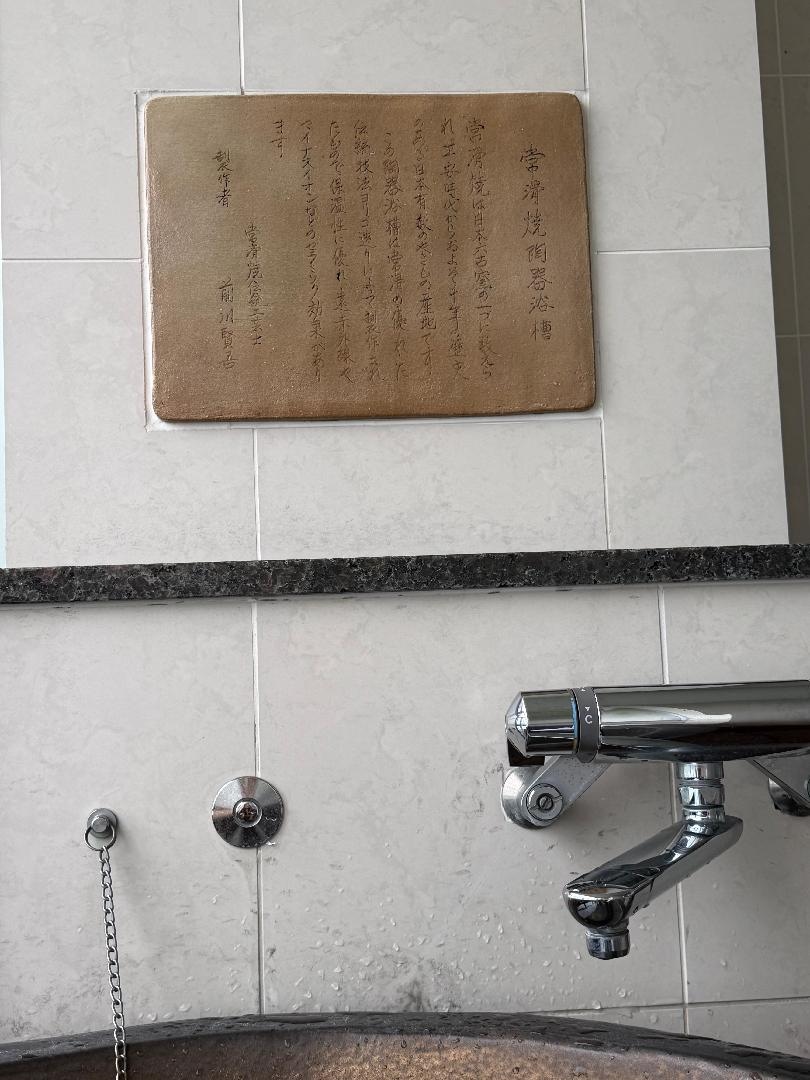 常滑焼陶器浴槽
常滑焼は日本六古窯の一つに数えら
れ平安時代からおよそ千年の歴史
のある日本有数のやきもの産地です。
この陶器浴槽は常滑の優れた
伝統技法ヨリコ造りによって制作され
たもので保温性に優れ遠赤外線や
マイナスイオンなどのリラックス効果があり
ます
常滑焼伝統工芸士
製作者 前川賢吾
C